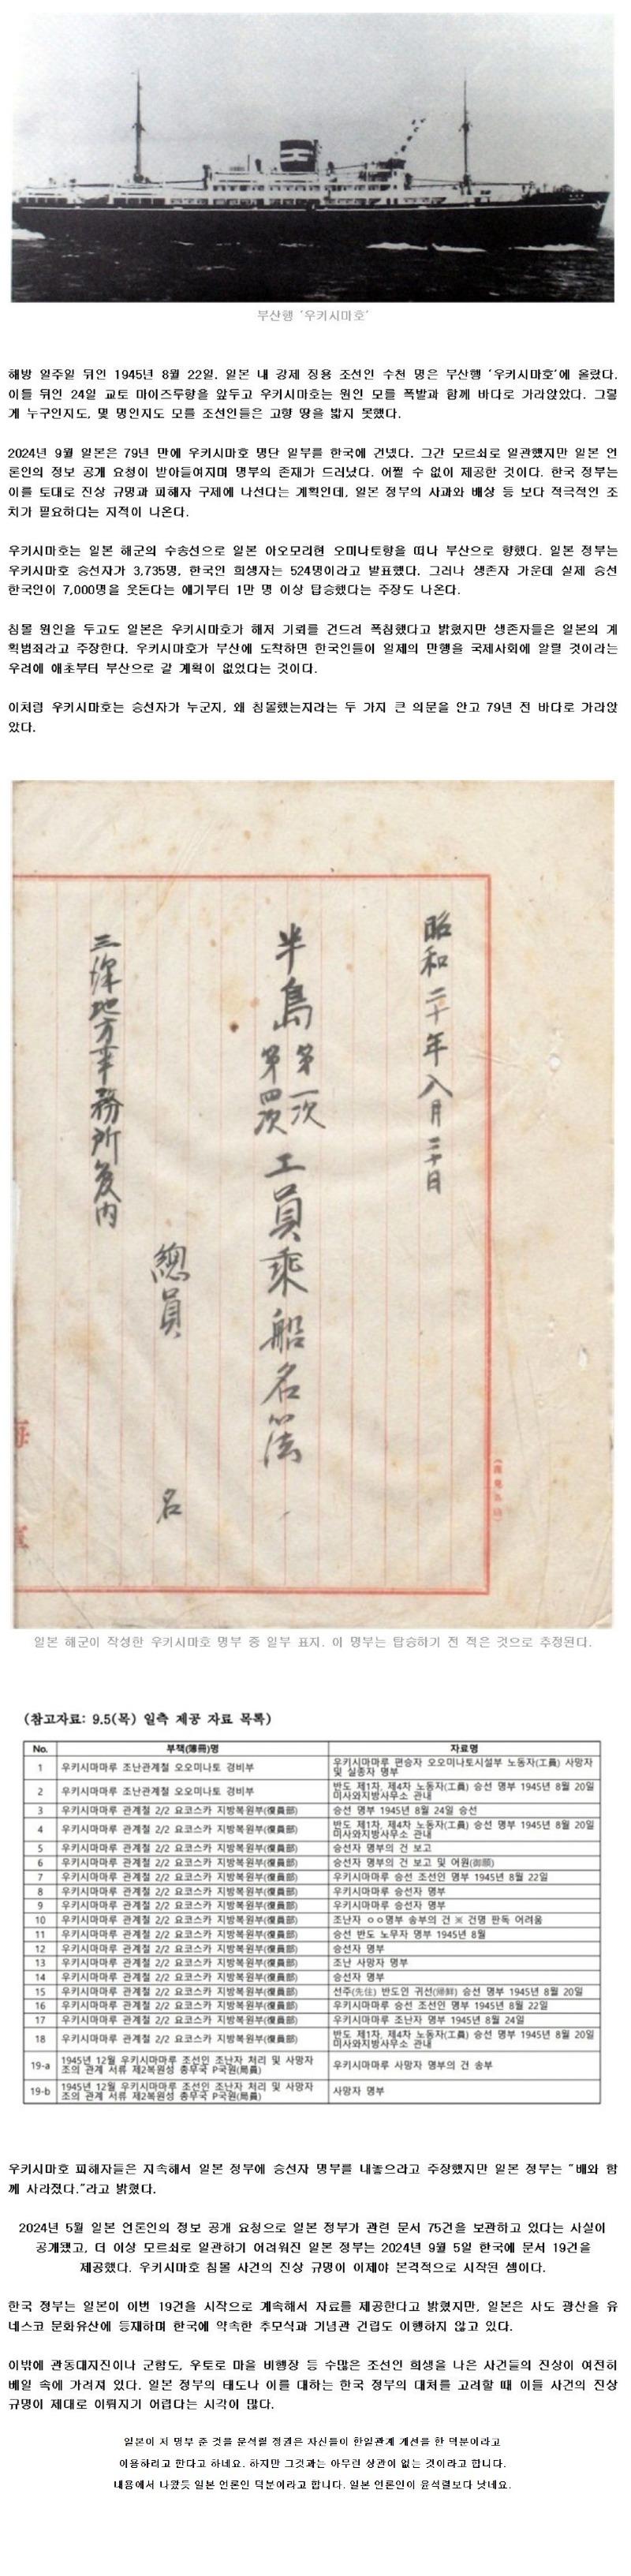 부산행 '우키시마호'
해방 일주일 뒤인 1945년 8월 22일, 일본 내 강제 징용 조선인 수천 명은 부산행 '우키시마호'에 올랐다.
이틀 뒤인 24일 교토 마이즈루항을 앞두고 우키시마호는 원인 모를 폭발과 함께 바다로 가라앉았다. 그렇
게 누구인지도, 몇 명인지도 모를 조선인들은 고향 땅을 밟지 못했다.
2024년 9월 일본은 79년 만에 우키시마호 명단 일부를 한국에 건넸다. 그간 모르쇠로 일관했지만 일본 언
론인의 정보 공개 요청이 받아들여지며 명부의 존재가 드러났다. 어쩔 수 없이 제공한 것이다. 한국 정부는
이를 토대로 진상 규명과 피해자 구제에 나선다는 계획인데, 일본 정부의 사과와 배상 등 보다 적극적인 조
치가 필요하다는 지적이 나온다.
우키시마호는 일본 해군의 수송선으로 일본 아오모리현 오미나토항을 떠나 부산으로 향했다. 일본 정부는
우키시마호 승선자가 3,735명, 한국인 희생자는 524명이라고 발표했다. 그러나 생존자 가운데 실제 승선
한국인이 7,000명을 웃돈다는 얘기부터 1만 명 이상 탑승했다는 주장도 나온다.
침몰 원인을 두고도 일본은 우키시마호가 해저 기뢰를 건드려 폭침했다고 밝혔지만 생존자들은 일본의 계
획범죄라고 주장한다. 우키시마호가 부산에 도착하면 한국인들이 일제의 만행을 국제사회에 알릴 것이라는
우려에 애초부터 부산으로 갈 계획이 없었다는 것이다.
이처럼 우키시마호는 승선자가 누군지, 왜 침몰했는지라는 두 가지 큰 의문을 안고 79년 전 바다로 가라앉
았다.
昭和二十年八月二十日
半島 第一次 第四次 工員乘船名簿
總員 名
三澤地方事務所管内
일본 해군이 작성한 우키시마호 명부 중 일부 표지. 이 명부는 탑승하기 전 적은 것으로 추정된다.
(참고자료: 9.5(목) 일측 제공 자료 목록)
No. 부책(簿冊)명 자료명
1 우키시마마루 조난관계철 오오미나토 경비부 우키시마마루 편승자 오오미나토시설부 노동자(工員) 사망자 및 실종자 명부
2 우키시마마루 조난관계철 오오미나토 경비부 반도 제1차, 제4차 노동자(工員) 승선 명부 1945년 8월 20일 미사와지방사무소 관내
3 우키시마마루 관계철 2/2 요코스카 지방복원부(復員部) 승선 명부 1945년 8월 24일 승선
4 우키시마마루 관계철 2/2 요코스카 지방복원부(復員部) 반도 제1차, 제4차 노동자(工員) 승선 명부 1945년 8월 20일 미사와지방사무소 관내
5 우키시마마루 관계철 2/2 요코스카 지방복원부(復員部) 승선자 명부의 건 보고
6 우키시마마루 관계철 2/2 요코스카 지방복원부(復員部) 승선자 명부의 건 보고 및 어원(御願)
7 우키시마마루 관계철 2/2 요코스카 지방복원부(復員部) 우키시마마루 승선 조선인 명부 1945년 8월 22일
8 우키시마마루 관계철 2/2 요코스카 지방복원부(復員部) 우키시마마루 승선자 명부
9 우키시마마루 관계철 2/2 요코스카 지방복원부(復員部) 우키시마마루 승선자 명부
10 우키시마마루 관계철 2/2 요코스카 지방복원부(復員部) 조난자 ㅇㅇ명부 송부의 건 ※ 건명 판독 어려움
11 우키시마마루 관계철 2/2 요코스카 지방복원부(復員部) 승선 반도 노무자 명부 1945년 8월
12 우키시마마루 관계철 2/2 요코스카 지방복원부(復員部) 승선자 명부
13 우키시마마루 관계철 2/2 요코스카 지방복원부(復員部) 조난 사망자 명부
14 우키시마마루 관계철 2/2 요코스카 지방복원부(復員部) 승선자 명부
15 우키시마마루 관계철 2/2 요코스카 지방복원부(復員部) 선주(先住) 반도인 귀선(帰鮮) 승선 명부 1945년 8월 20일
16 우키시마마루 관계철 2/2 요코스카 지방복원부(復員部) 우키시마마루 승선 조선인 명부 1945년 8월 22일
17 우키시마마루 관계철 2/2 요코스카 지방복원부(復員部) 우키시마마루 조난자 명부 1945년 8월 24일
18 우키시마마루 관계철 2/2 요코스카 지방복원부(復員部) 반도 제1차, 제4차 노동자(工員) 승선 명부 1945년 8월 20일 미사와지방사무소 관내
19-a 1945년 12월 우키시마마루 조선인 조난자 처리 및 사망자 조의 관계 서류 제2복원성 총무국 P국원(局員) 우키시마마루 사망자 명부의 건 송부
19-b 1945년 12월 우키시마마루 조선인 조난자 처리 및 사망자 조의 관계 서류 제2복원성 총무국 P국원(局員) 사망자 명부
우키시마호 피해자들은 지속해서 일본 정부에 승선자 명부를 내놓으라고 주장했지만 일본 정부는 "배와 함
께 사라졌다."라고 밝혔다.
2024년 5월 일본 언론인의 정보 공개 요청으로 일본 정부가 관련 문서 75건을 보관하고 있다는 사실이
공개됐고, 더 이상 모르쇠로 일관하기 어려워진 일본 정부는 2024년 9월 5일 한국에 문서 19건을
제공했다. 우키시마호 침몰 사건의 진상 규명이 이제야 본격적으로 시작된 셈이다.
한국 정부는 일본이 이번 19건을 시작으로 계속해서 자료를 제공한다고 밝혔지만, 일본은 사도 광산을 유
네스코 문화유산에 등재하며 한국에 약속한 추모식과 기념관 건립도 이행하지 않고 있다.
이밖에 관동대지진이나 군함도, 우토로 마을 비행장 등 수많은 조선인 희생을 낳은 사건들의 진상이 여전히
베일 속에 가려져 있다. 일본 정부의 태도나 이를 대하는 한국 정부의 대처를 고려할 때 이들 사건의 진상
규명이 제대로 이뤄지기 어렵다는 시각이 많다.
일본이 저 명부 준 것을 문석렬 정권은 자신들이 한일관계 개선을 한 덕분이라고
이용하려고 한다고 하네요. 하지만 그것과는 아무런 상관이 없는 것이라고 합니다.
내용에서 나왔듯 일본 언론인 덕분이라고 합니다. 일본 언론인이 윤석렬보다 낫네요.